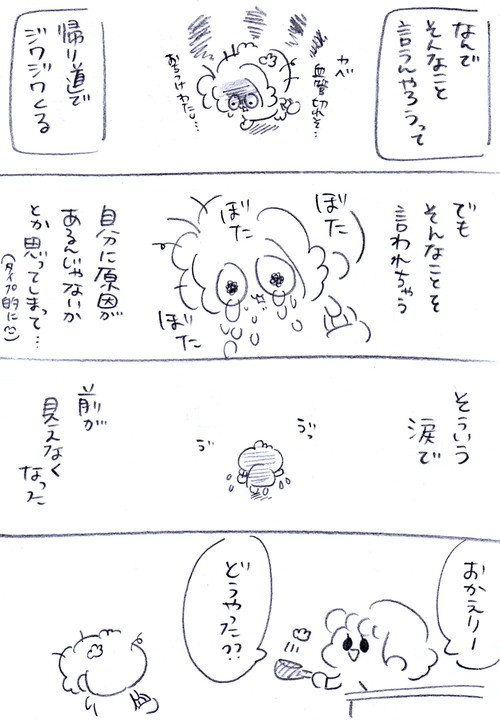 なんで
そんなこと
言うんやろうって
カベ
血管切れそ…
おちつけわたし…
帰り道で
ジワジワくる
でも
そんなことを
言われちゃう
ぼた
ぼた
ぼた
自分に原因が
あるんじゃないか
とか思ってしまって…
(タイプ的に)
そういう
涙で
ゔっ
ゔ
前が
見えなく
なった
おかえりー
どうやった??